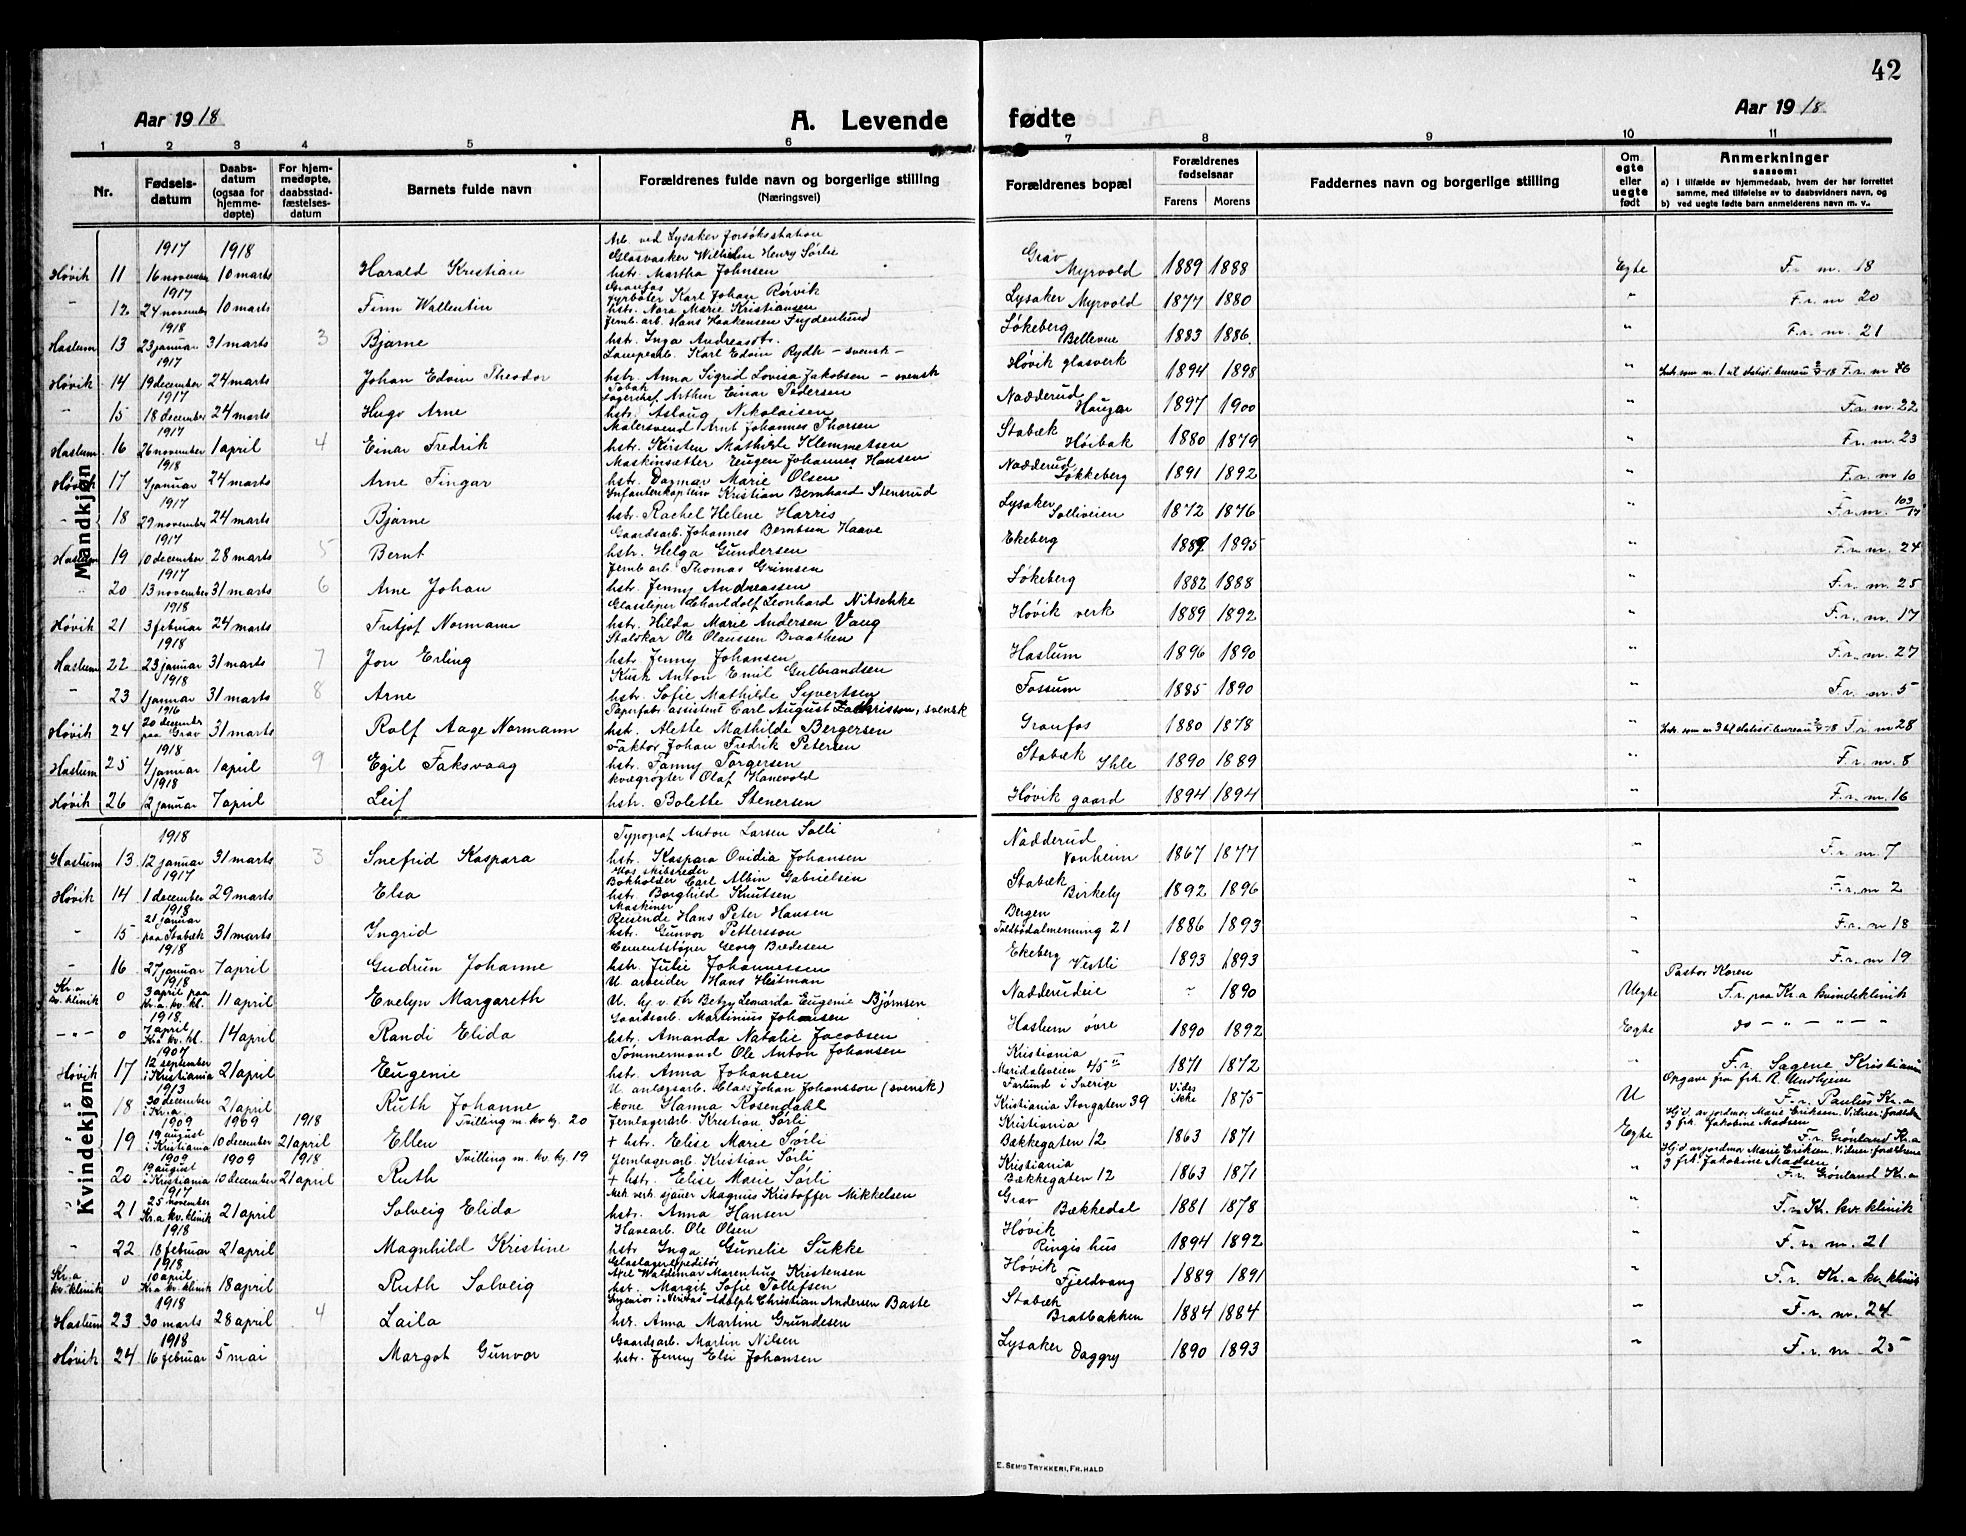 42
Aar 1918
A. Levende fødte
Aar 1918
1 2 3 4 5 6 7 8 9 10 11
Nr.
Fødsels-datum
Daabs-datum (ogsaa for hjemme-døpte)
For hjem-medøpte, daabsstad-fæstelses-datum
Barnets fulde navn
Forældrenes fulde navn og borgerlige stilling (Næringsvei)
Forældrenes bopæl
Forældrenes fødselsaar
Farens Morens
Faddernes navn og borgerlige stilling
Om egte eller uegte født
Anmerkninger
saasom:
a) i tilfælde av hjemmedaab, hvem der har forrettet samme, med tilføielse av to daabsvidners navn, og
b) ved uegte fødte barn anmelderens navn m. v.
Mandkjøn
1917 1918 Arb. ved Lysaker forsøksstation
Glasvasker Wilhelm Henry Sørlie Grav
Høvik 11 16 november 10 marts Harald Kristian hstr. Martha Johnsen Myrvold 1889 1888 Egte F. r. nr. 18
1917 Granfos
Fyrbøter Karl Johan Rørvik Lysaker
" 12 24 november 10 marts Finn Wallentin hstr. Nora Marie Kristiansen Myrvold 1877 1880 " F. r. nr 20
1918 Jernb. arb. Hans Haakensen Frydenlund Løkeberg
Haslum 13 23 januar 31 marts 3 Bjarne hstr. Inga Andreasdtr. Bellevue 1883 1886 " F. r. nr. 21
1917 Lampearb. Karl Edvin Rydh - svensk -
Høvik 14 19 december 24 marts Johan Edvin Theodor hstr. Anna Sigrid Lovisa Jakobsen - svensk Høvik glasverk 1894 1898 " F. r. nr
1917 Tobak
Lagerchef Arthur Einar Pedersen Nadderud
" 15 18 december 24 marts Hugo Arne hstr. Aslaug Nikolaisen Haugar 1897 1900 " F. r. nr. 22
1917 Malersvend Arnt Johannes Thorsen Stabæk
Haslum 16 26 november 1 april 4 Einar Fredrik hstr. Kirsten Mathilde Klemmetsen Høibak 1880 1879 " F. r. nr. 23
1918 Maskinsætter Eugen Johannes Hansen Nadderud
Høvik 17 7 januar 24 marts Arne Fingar hstr. Dagmar Marie Olsen Løkkeberg 1891 1892 " F. r. nr 10
1917 Infanterikaptein Kristian Bernhard Stensrud Lysaker
" 18 29 november 24 marts Bjarne hstr. Rachel Helene Harris Solliveien 1872 1876 " F. r. nr. 103/17
1917 Gaardsarb. Johannes Berntsen Haave
Haslum 19 10 december 28 marts 5 Bernt hstr. Helga Gundersen Ekeberg 1889 1895 " F. r. nr. 24
1917 Jernb arb. Thomas Grimsen
" 20 13 november 31 marts 6 Arne Johan hstr. Jenny Andreassen Løkeberg 1882 1888 " F. r. nr. 25
1918 Glassliper Charldolf Leonhard Nitschke
Høvik 21 3 februar 24 marts Fritjof Normann hstr. Hilda Marie Andersen Vang Høvik verk 1889 1892 " F. r. nr. 17
1918 Staldkar Ole Olaussen Braathen
Haslum 22 23 januar 31 marts 7 Jon Erling hstr. Jenny Johansen Haslum 1896 1890 " F. r. nr. 27
1918 Kusk Anton Emil Gulbrandsen
" 23 1 januar 31 marts 8 Arne hstr. Sofie Mathilde Syvertsen Fossum 1885 1890 " F. r. nr. 5
1916 Paperfabr. assistent Carl August Zakrisson, svensk
Høvik 24 20 december paa Grav 31 marts Rolf Aage Normann hstr. Alette Mathilde Bergersen Granfos 1880 1878 " F. r. nr 28
1918 Faktor Johan Fredrik Petersen Stabæk
Haslum 25 4 januar 1 april 9 Egil Faksvaag hstr. Fanny Torgersen Ihle 1890 1889 " F. r. nr. 8
1918 kvægrøgter Olaf Hanevold
Høvik 26 12 januar 7 april Leif hstr. Bolette Stenersen Høvik gaard 1894 1894 " F. r. nr. 16
Kvindekjøn
1918 Typograf Anton Larsen Solli Nadderud
Haslum 13 12 januar 31 marts 3 Snefrid Kaspara hstr. Kaspara Ovidia Johansen Vonheim 1867 1877 " F. r. nr. 7
1917 Hos skibsreder
Bokholder Carl Albin Gabrielsen Stabæk
Høvik 14 1 december 29 marts Elsa hstr. Borghild Knutsen Birkely 1892 1896 " F. r. nr 2
1918 Maskiner
Reisende Hans Peter Hansen Bergen
" 15 21 januar paa Stabæk 31 marts Ingrid hstr. Gunvor Pettersson Toldbodalmenning 21 1886 1893 " F. r. nr 18
1918 Cementstøper Georg Bredesen Ekeberg
" 16 27 januar 7 april Gudrun Johanne hstr. Julie Johannessen Vestli 1893 1893 " F. r. nr 19
Kr.a kv. klinik 1918 U arbeider Hans Heitman Pastor Koren
0 3 april paa Kr.a. kv. kl. 11 april Evelyn Margareth U. hj. v. dtr Betzy Lenarda Eugenie Bjørnsen Nadderudeie " 1890 Uegte F. r. paa Kr. a kvindeklinik
1918. Gaardsarb. Martinius Johansen
- " - 0 7 april Kr.a kv. kl. 14 april Randi Elida hstr. Amanda Natalie Jacobsen Haslum øvre 1890 1892 Egte do - " - " - "
1907 Tømmermand Ole Anton Johansen Kristiania
Høvik 17 12 september i Kristiania 21 april Eugenie hstr. Anna Johansen Maridalsveien 1871 1872 " F. r. Sagene Kristiania
1913 U. anlægsarb. Claes Johan Johansson (svensk) Farlund i Sverige Vides ikke Opgave fra frk.
" 18 30 december i Kr.a. 21 april Ruth Johanne kone Hanna Rosendahl Kristiania Storgaten 39 1875 U F. r. Paulus Kr. a
1909 1909 1918 Tvilling m. kv. kj. 20 Jernlagerarb. Kristian Sørli Kristiania Hj. d. av jordmor Marie Eriksen. Vidner: forældrene
" 19 19 august i Kristiania 10 december 21 april Ellen + hstr. Elise Marie Sørli Bækkegaten 12 1863 1871 Egte g frk. Jakobine Madsen F. r. Grønland Kr. a
1909 1909 1918 Tvilling m. kv. kj. 19 Jernlagerarb. Kristian Sørli Kristiania Hj. d av jordmor Marie Eriksen. Vidner: forældrene
" 20 19 august i Kristiania 10 december 21 april Ruth + hstr. Elise Marie Sørli Bækkegaten 12 1863 1871 " g frk. Jakobine Madsen F. r. Grønland Kr. a
1917 Mek. verk. sjauer Magnus Kristoffer Mikkelsen Grav
" 21 25 november Kr. a kv. klinik 21 april Solveig Elida hstr. Anna Hansen Bækkedal 1881 1878 " F. r. Kr. kv. klinik
1918 Havearb. Ole Olsen Høvik
" 22 18 februar 21 april Magnhild Kristine hstr Inga Gunelie Sukke Ringis hus 1894 1892 " F. r. nr. 21
Kr.a kv. klinik 1918 Glaslagerexpeditør
Axel Waldemar Marenhus Kristensen Høvik
0 10 april Kr. a kv. klinik 18 april Ruth Solveig hstr. Margit Sofie Tollefsen Fjeldvang 1889 1891 " F. r. Kr. a kv. klinik
1918 Ingeniør i Veritas Adolph Christian Andersen Baste Stabæk
Haslum 23 30 marts 28 april 4 Laila hstr. Anna Martine Grundesen Bratbakken 1884 1884 " F. r. nr. 24
1918 Gaardsarb. Martin Nilsen Lysaker
Høvik 24 16 februar 5 mai Margot Gunvor hstr. Jenny Elsi Johansen Daggry 1890 1893 " F. r. nr 25
E. SEM'S TRYKKERI, FR.HALD